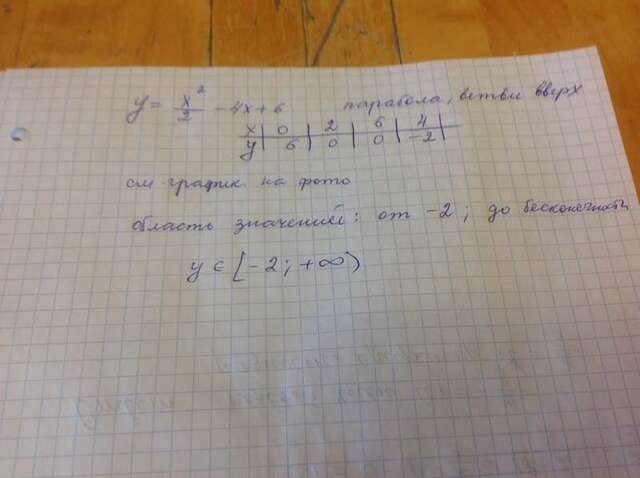 y = x²/2 - 4x + 6 парабола, ветви вверх
x | 0 | 2 | 6 | 4 |
y | 6 | 0 | 0 | -2 |
см график на фото
область значений: от -2; до бесконечности
y ∈ [-2; +∞)